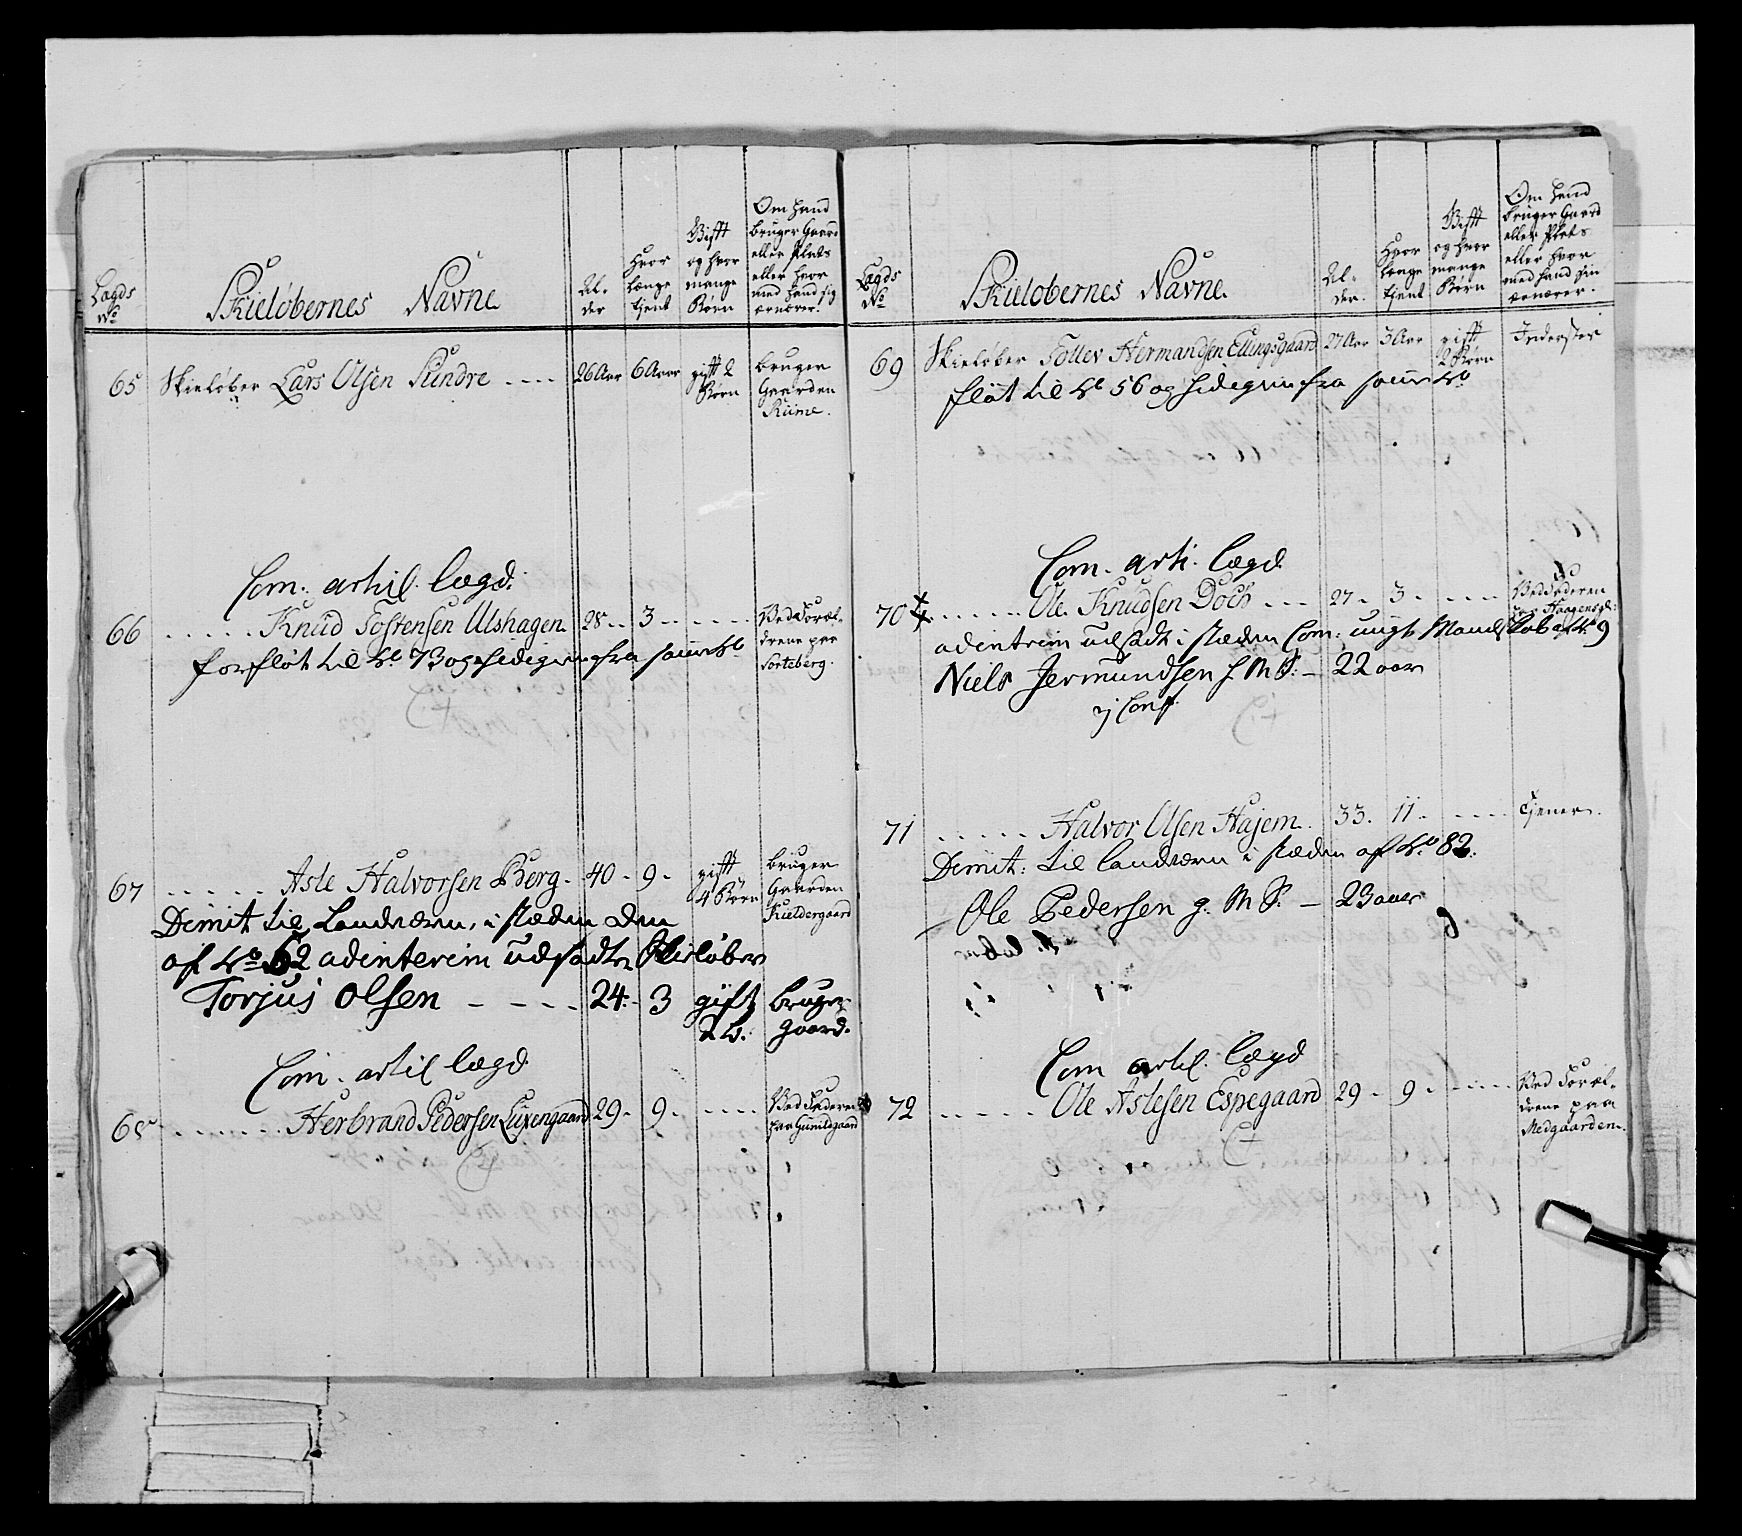 Lægds
No
Skieløbernes Navne
Al-
der
Hvor
længe
tjent
Gift
og hvor
mange
Børn
Om hand
bruger Gaard
eller Plads
eller hvor
med hand sig
ernærer.
65 Skieløber Lars Olsen Sundre .... 26 Aar 6 Aar gift 2 Børn bruger Gaarden Ruime.
Com. artil. lægd.
66 ..... Knud Tostensen Ulshagen 28 .. 3 ..... Ved Foræl-
drene paa
Sorteberg.
forfløt til No 73 og
67 ..... Asle Halvorsen Berg. 40 - 9 - gift 4 Børn bruger Gaarden Kieldergaard
Dimit til Landværn, i stæden den
af No 62 adinterim udsadte Skieløber
Torjus Olsen - - - - 24 - 3 gift 2 b. bruger gaard.
Com. artil lægd
68 ...... Herbrand Pedersen 29 - 9 - ..... Ved Faderen
paa
Lægds
No
Skieløbernes Navne.
Al-
der.
Hvor
længe
tjent
Gift
og hvor
mange
Børn
Om hand
bruger Gaard
eller Plads
eller hvor
med hand sin
ernærer.
69 Skieløber Tollev Hermandsen Ellingsgaard 27 Aar 3 Aar gift 2 Børn Inderster
fløt til No 56 og
Com. arti. lægd
70 ...... Ole Knudsen Doch ... 27 - 3 - .... Ved Faderen
paa
adinterim udsadt i stæden Com: ungt Mandskab af No 9
Niels Jermundsen f M S: - 22 aar
ej Conf.
71 ..... Halvor Olsen Hajem. 33. 11 - .... Tjener.
Dimit: til landværn i stæden af No 82.
Ole Pedersen g. M S. - 23 aar
Com artil. lægd
72 ..... Ole Aslesen Espegaard 29 - 9 - .... Ved Foræl-
drene paa
Medgaarden.